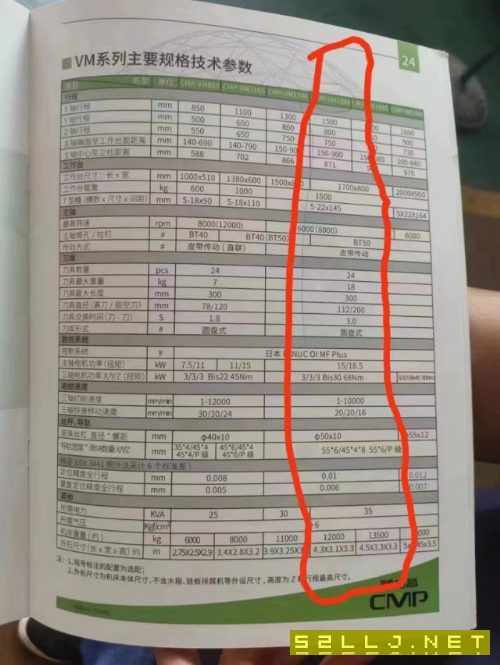 VM系列主要规格技术参数
24
项目 机型 单位 CMP-VM885 CMP-VM1165
行程
X轴行程 mm 850 1100 1300 1500 1800
Y轴行程 mm 500 650 800 800
Z轴行程 mm 550 650 750 750
主轴端面至工作台面距离 mm 140-690 140-790 150-900 100-840
主轴中心至立柱距离 mm 588 702 866 871 976
工作台
工作台尺寸：长x宽 mm 1000x510 1380x600 1700x800 2000X905
工作台载重 kg 600 1000 1500
T型槽（槽数x尺寸x间距） mm 5-18x90 5-18x110 5-22x145 5X22X164
主轴
最高转速 rpm 8000(12000) 6000(8000) 6000
主轴锥孔/拉钉 # BT40 BT40 (BT50) BT50
传动方式 # 皮带传动（直联） 皮带传动
刀库
刀具数量 pcs 24 24
刀具最大重量 kg 7 18
刀具最大长度 mm 300 300
刀具直径（满刀/临空刀） mm 78/120 112/200
刀具交换时间（刀-刀） S 1.8 3.0
刀库形式 # 圆盘式 圆盘式
数控系统
控制系统 # 日本 NUC OI MF Plus
主轴电机功率（扭矩） kW 7.5/11 11/15 15/18.5
三轴电机功率X/Y/Z（扭矩） kW 3/3/3 Bis22 45Nm 3/3/3 Bis30 68Nm
进给速度
三轴切削速度 mm/min 1-12000 1-10000
三轴快速移动速度 m/min 30/30/24 20/20/16
丝杆、导轨
滚珠丝杠 直径*螺距 mm φ40x10 φ50x10 φ55x12
导轨宽度*滑块数量X/Y/Z mm 35*4/45*4 45*6/45*4 55*6/45*4*8 55*6/Y/P级
45*4/P级 45*6/P级
定位精度全行程 mm 0.008 0.01 0.012
重复定位精度全行程 mm 0.005 0.006 0.007
其他
所需电力 KVA 25 30 35
所需气压 Kgf/cm² 6
机床重量（约） kg 6000 8000 11000 12000 13500
外形尺寸（长x宽x高）约 m 2.75X2.5X2.9 3.4X2.8X3.2 4.3X3.1X3.3 4.5X3.3X3.3
注：1.括号标注的配置为选配；
2.外形尺寸为机床本体尺寸，不含水箱、链板排屑机等外设尺寸，高度为Z轴行程最高尺寸。
CMP
52LLJ.NET